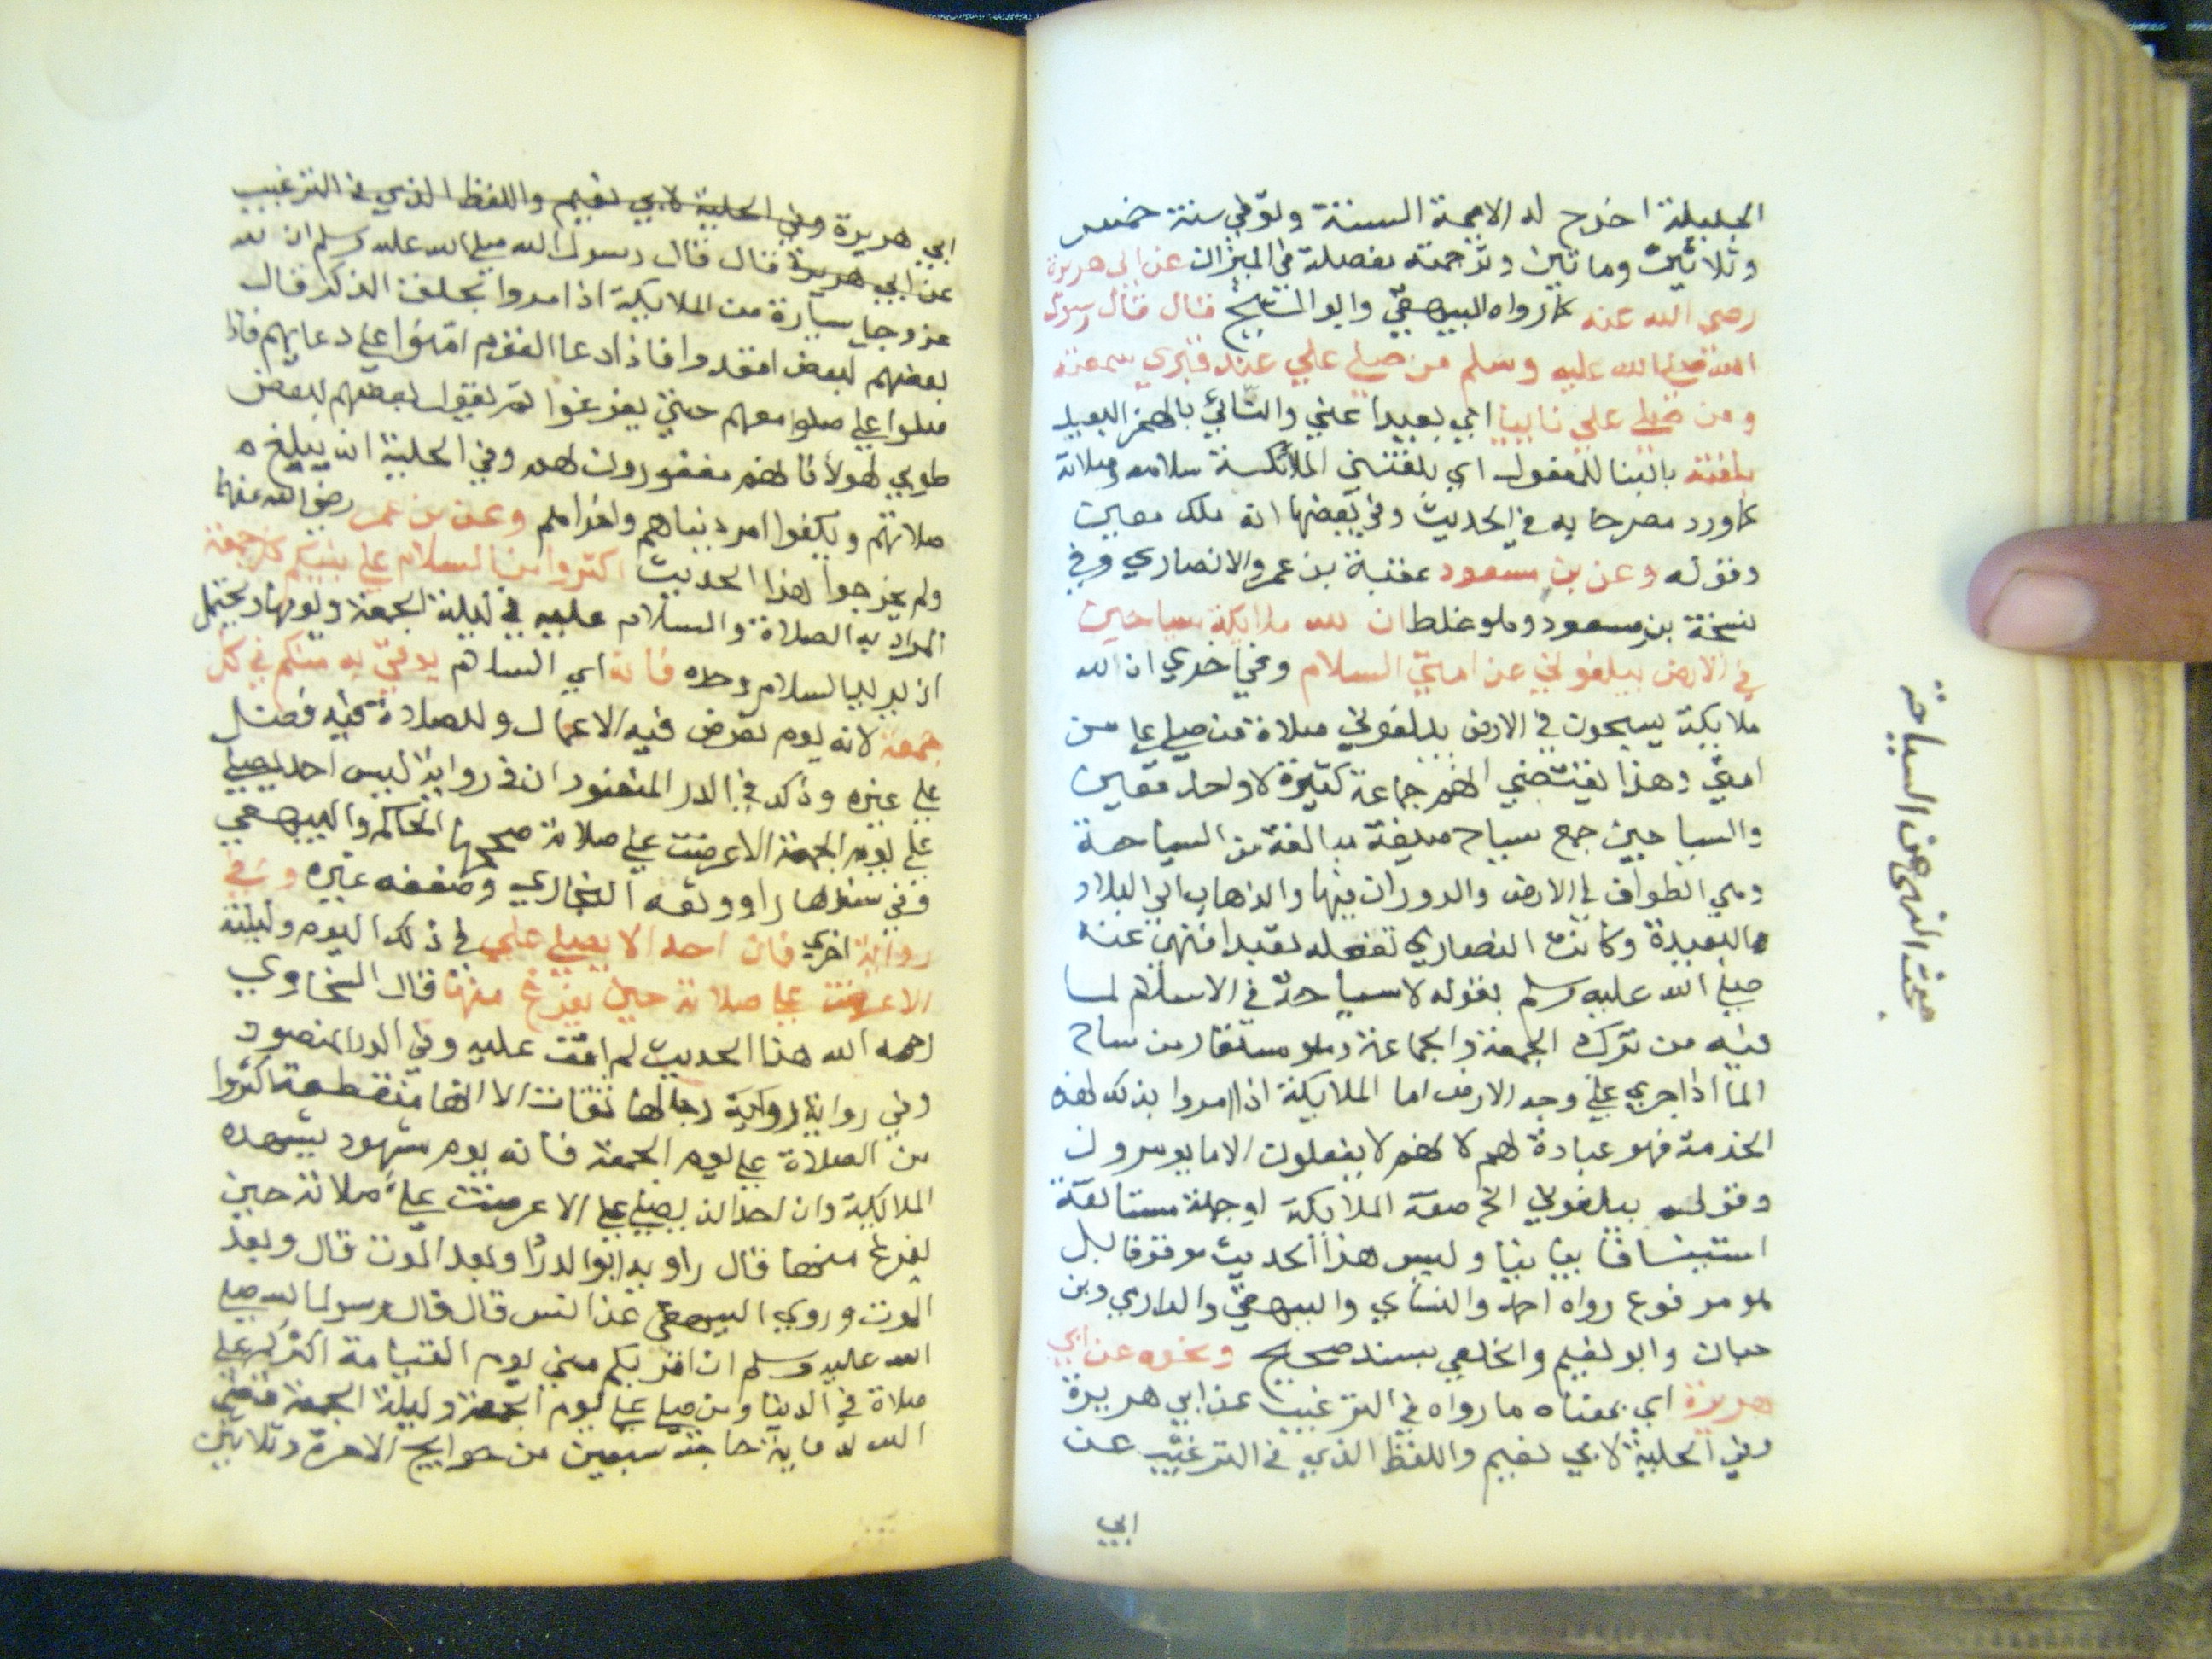 الجليلة اخرج له الايمة الستة وتوفي سنة خمس
وثلاثين وماتين وترجمته مفصلة في الميزان عن ابي هريرة
رضي الله عنه كما رواه البيهقي وابو الشيخ قال قال رسول
الله صلى الله عليه وسلم من صلي علي عند قبري سمعته
ومن صلي علي نائيا اي بعيدا عني والنائي بالهمز البعيد
بلغته بالبنا للمفعول اي بلغتني الملائكة سلامه وصلاته
كما ورد مصرحا به في الحديث وفي بعضها انه ملك معين
وقوله وعن بن مسعود عقبة بن عمرو الانصاري وفي
نسخة بن مسعود وهو غلط ان لله ملايكة سياحين
في الارض يبلغوني عن امتي السلام وفي اخري ان الله
ملايكة يسيحون في الارض يبلغوني صلاة من صلي علي من
امتي وهذا يقتضي انهم جماعة كثيرة لا واحد معين
والسياحين جمع سياح صيغة مبالغة من السياحة
وهي الطواف في الارض والدوران فيها والذهاب الي البلاد
البعيدة وكانت النصاري تفعله تعبدا فنهي عنه
صلي الله عليه وسلم بقوله لا سياحة في الاسلام لما
فيه من ترك الجمعة والجماعة وهو مستعار من ساح
الما اذا جري علي وجه الارض اما الملايكة اذا امروا بذلك لهذه
الخدمة فهو عبادة لهم لانهم لا يفعلون الا ما يومرون
وقوله يبلغوني الخ صفة الملايكة او جملة مستانفة
استينافا بيانيا وليس هذا الحديث موقوفا بل
هو مرفوع رواه احمد والنساي والبيهقي والدارمي وبن
حبان وابو نعيم والخلعي بسند صحيح ونحوه عن ابي
هريرة اي بمعناه ما رواه في الترغيب عن ابي هريرة
وفي الحلية لابي نعيم واللفظ الذي في الترغيب عن
ابي
مبحث النهي عن السياحة
ابي هريرة وفي الحلية لابي نعيم واللفظ الذي في الترغيب
عن ابي هريرة قال قال رسول الله صلي الله عليه وسلم ان لله
عز وجل سيارة من الملايكة اذا مروا بحلق الذكر قال
بعضهم لبعض اقعدوا فاذا دعا القوم امنوا علي دعايهم فاذا
صلوا علي صلوا معهم حتي يفرغوا ثم يقول بعضهم لبعض
طوبي لهولا فانهم مغفورون لهم وفي الحلية ان يبلغ ه
صلاتهم ويكفوا امر دنياهم واخراهم وعن بن عمر رضي الله عنهما
ولم يخرجوا هذا الحديث اكثروا من السلام علي نبيكم كل جمعة
المراد به الصلاة والسلام عليه في ليلة الجمعة ويومها ويحتمل
ان يريد بالسلام وحده فانه اي السلام يوتي به منكم في كل
جمعة لانه يوم تعرض فيه الاعمال وللصلاة فيه فضل
علي غيره وذكر في الدر المنضود ان في رواية ليس احد يصلي
علي يوم الجمعة الا عرضت علي صلاته صححها الحاكم والبيهقي
وفي سندها راو وثقه البخاري وضعفه غيره وفي
رواية اخري فان احد الا يصلي علي في ذلك اليوم وليلته
الا عرضت علي صلاته حين يفرغ منها قال السخاوي
رحمه الله هذا الحديث لم اقف عليه وفي الدر المنضود
وفي رواية رواية رجالها ثقات الا انها منقطعة اكثروا
من الصلاة علي يوم الجمعة فانه يوم مشهود يشهده
الملايكة وان احدا لن يصلي علي الا عرضت علي صلاته حين
يفرغ منها قال راويه ابو الدردا وبعد الموت قال وبعد
الموت وروي البيهقي عن انس قال قال رسول الله صلي
الله عليه وسلم ان اقربكم مني يوم القيامة اكثركم علي
صلاة في الدنيا ومن صلي علي يوم الجمعة وليلة الجمعة قضي
الله له ماية حاجة سبعين من حوايج الاخرة وثلاثين